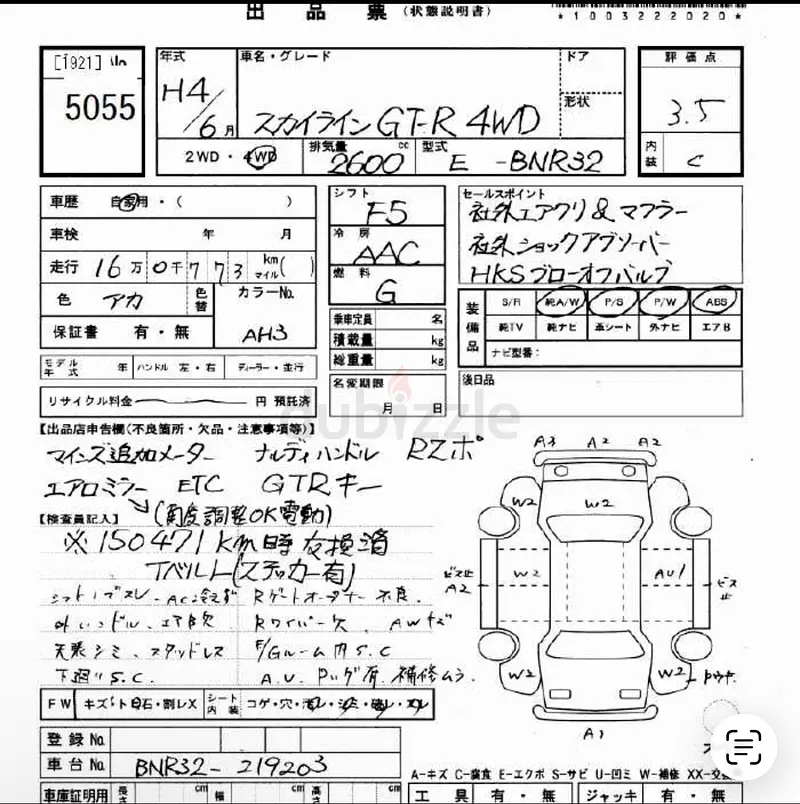 出 品 票 (状態説明書)
*1003222020*
[1921] No
5055
年式
H4/6月
車名・グレード
スカイライン GT-R 4WD
ドア
形状
評価点
3.5
内装 C
2WD・4WD
排気量 2600 cc
型式 E -BNR32
車歴 自家用・( )
車検 年 月
走行 16万0千773 km マイル( )
色 アカ 色替
カラーNo. AH3
保証書 有・無
シフト F5
冷房 AAC
燃料 G
乗車定員 名
積載量 kg
総重量 kg
名変期限
月 日
セールスポイント
社外エアクリ&マフラー
社外ショックアブソーバー
HKSブローオフバルブ
装備品
S/R 純A/W P/S P/W ABS
純TV 純ナビ 革シート 外ナビ エアB
ナビ型番:
後日品
モデル年式 年 ハンドル 左・右 ディーラー・並行
リサイクル料金 円 預託済
dubizzle
【出品店申告欄(不良箇所・欠品・注意事項等)】
マインズ追加メーター ナルディハンドル Rスポ
エアロミラー ETC GTRキー
(角度調整OK電動)
【検査員記入】
※150471km時 交換済
Tベルト(ステッカー有)
シフトノブスレ、AC冷えず Rゲートオープナー不良、
外ハンドル、エア欠 Rワイパー欠、AWキズ
天張シミ、スタッドレス F/Gルーム内S.C
下廻りS.C、 A.U、Pッグ有、補修ムラ、
FW キズ・ト 石・割レX シート内装 コゲ・穴・汚レ・シミ・破レ・スレ
A3 A2 A2
W2 W2
ビス止 A2 W2 AU1 ビス止
W2 W2
A1
登録No.
車台No. BNR32-219203
A-キズ C-腐食 E-エクボ S-サビ U-凹ミ W-補修 XX-交
車庫証明用 長さ cm 幅 cm 高さ cm
工具 有・無 ジャッキ 有・無